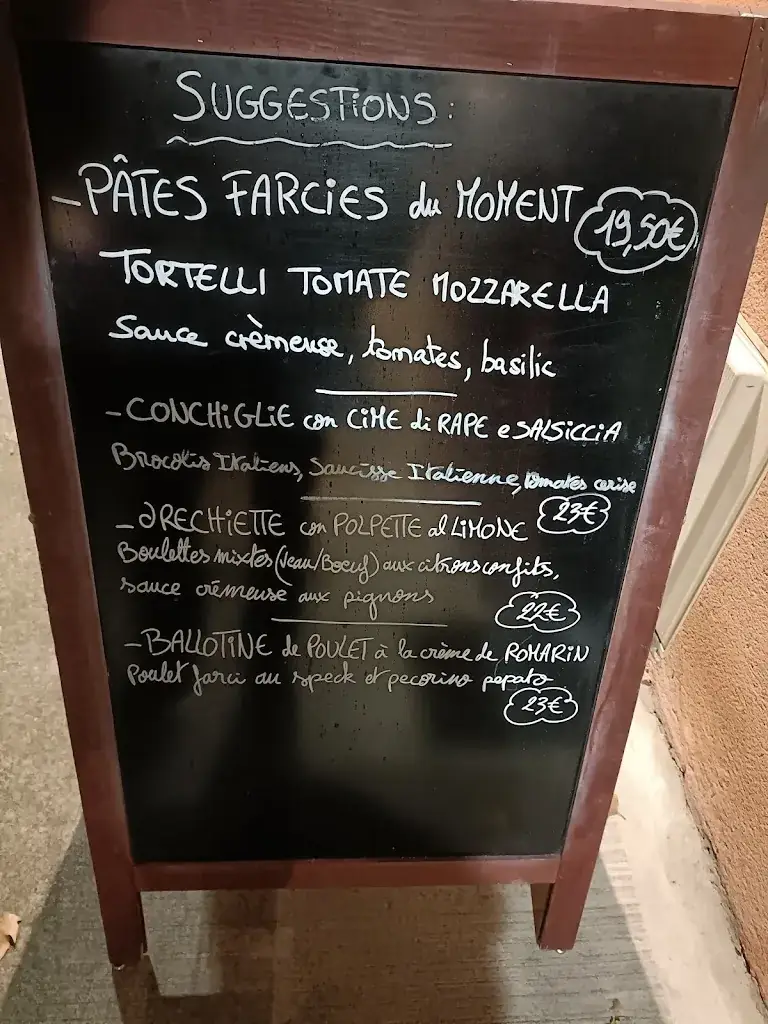 SUGGESTIONS:
- PÂTES FARCIES du MOMENT 19,50€
TORTELLI TOMATE MOZZARELLA
Sauce crèmeuse, tomates, basilic
- CONCHIGLIE con CIME di RAPE e SALSICCIA
Brocolis Italiens, Saucisse Italienne, tomates cerise
23€
- ORECHIETTE con POLPETTE al LIMONE
Boulettes mixtes (Veau/Boeuf) aux citrons confits,
sauce crémeuse aux pignons
22€
- BALLOTINE de POULET à la crème de ROMARIN
Poulet farci au speck et pecorino pepato
23€